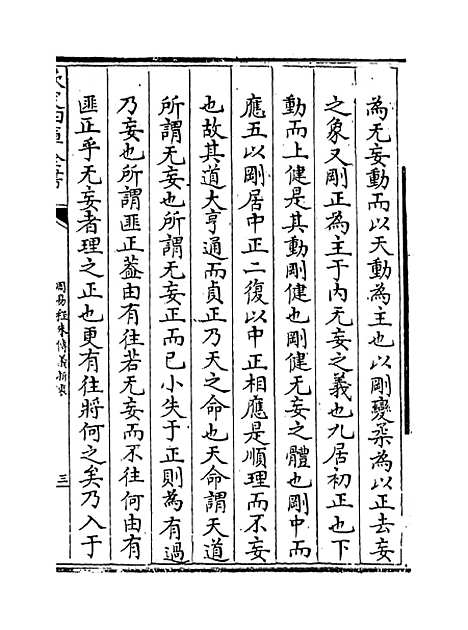 為无妄動而以天動為主也以剛變柔為以正去妄
之象又剛正為主于内无妄之義也九居初正也下
動而上健是其動剛健也剛健无妄之體也剛中而
應五以剛居中正二復以中正相應是順理而不妄
也故其道大亨通而貞正乃天之命也天命謂天道
所謂无妄也所謂无妄正而已小失于正則為有過
乃妄也所謂匪正葢由有往若无妄而不往何由有
匪正乎无妄者理之正也更有往將何之矣乃入于
欽定四庫全書
周易程朱傳義折衷
三